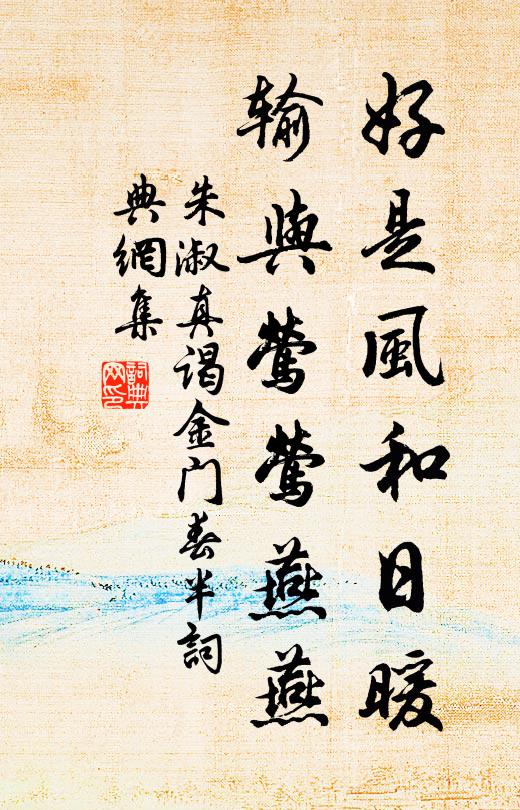 好是風和日暖
输與鶯鶯燕燕
朱淑真谒金门春半詞
典網集
詞典
网印